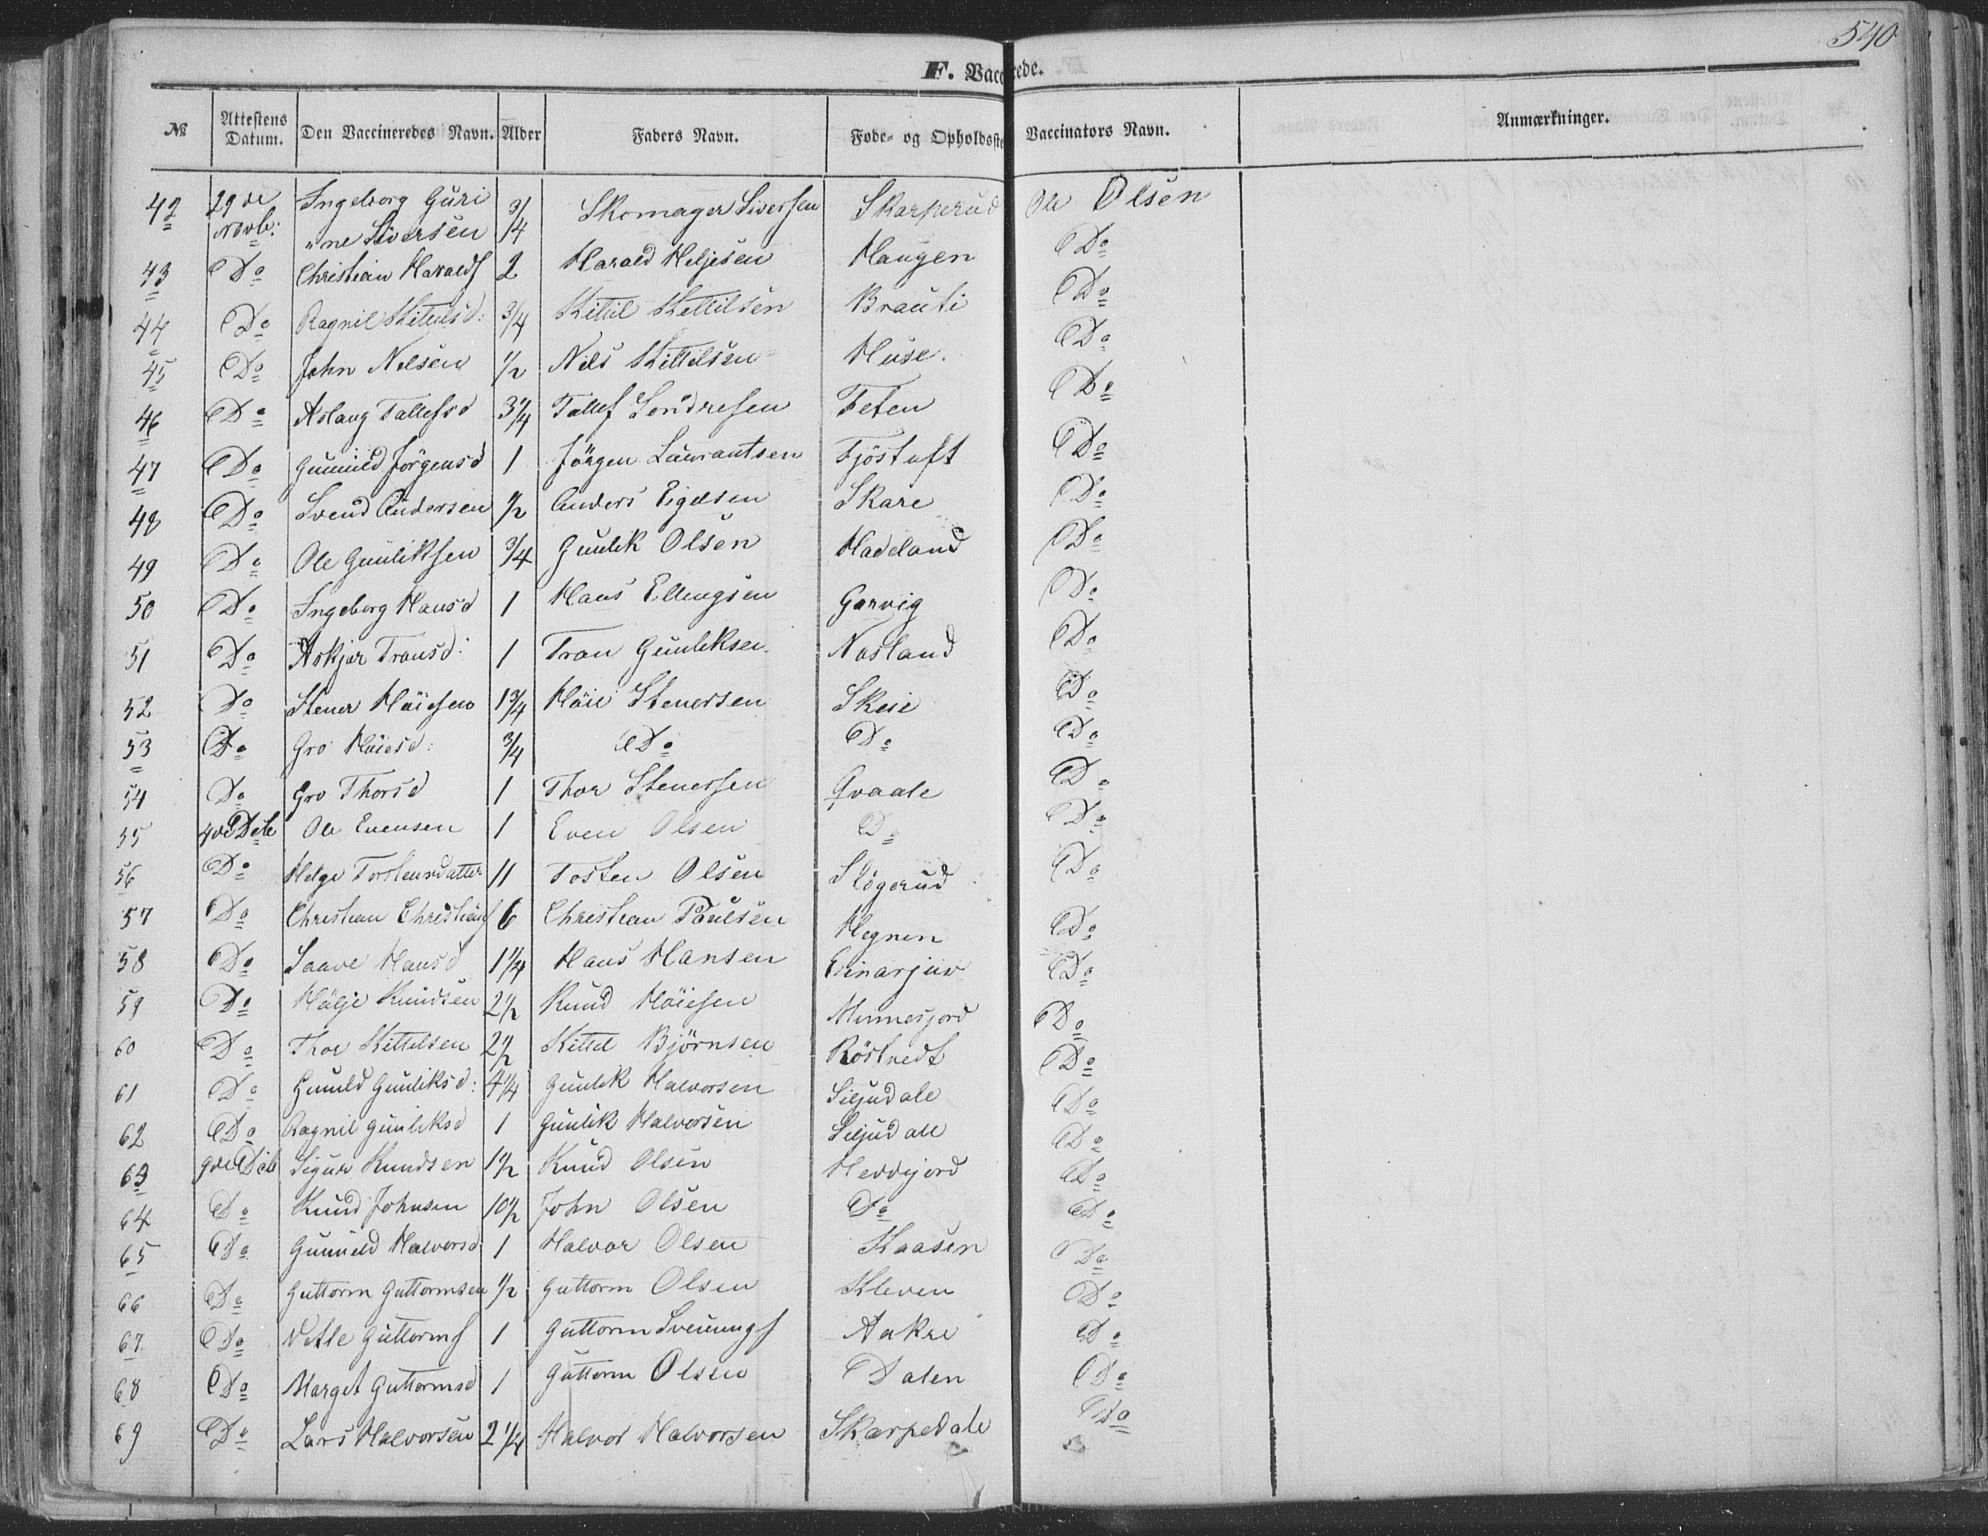 540
F. Vaccinerede.
№ Attestens Datum. Den Vaccineredes Navn. Alder Faders Navn. Føde- og Opholdsste Vaccinators Navn. Anmærkninger.
42 29de Novb: Ingeborg Guri„ne Siversen 3/4 Skomager Siversen Skarperud Ole Olsen
43 Do Christian Haralds 2 Harald Heljesen Haugen Do
44 Do Ragnil Kittilsd: 3/4 Kittil Kettilsen Brauti Do
45 Do John Nelsen 1/2 Nils Kittilsen Huse. Do
46 Do Aslaug Tallefsd 3 1/4 Tallef Sondresen Feten Do
47 Do Gunnild Jörgensd 1 Jörgen Laurantsen Fjöstuft Do
48 Do Svend Andersen 1/2 Anders Eigelsen Skare Do
49 Do Ole Gunliksen 3/4 Gunlik Olsen Hadeland Do
50 Do Ingeborg Hansd 1 Hans Ellengsen Garvig Do
51 Do Askjær Transd: 1 Tran Gunleksen Nasland Do
52 Do Stener Höiesen 1 3/4 Höie Stenersen Skeie Do
53 Do Gro Höiesd: 3/4 Do Do Do
54 Do Gro Thorsd 1 Thor Stenersen Qvaale Do
55 4de Decb Ole Evensen 1 Even Olsen Do Do
56 Do Helge Torstensdatter 11 Tosten Olsen Slögerud Do
57 Do Christian Christians 6 Christian Paulsen Hegnen Do
58 Do Saave Hansd 1 1/4 Hans Hansen Einarjuv Do
59 Do Hölje Knudsen 2 1/2 Knud Höiesen Munnesjord Do
60 Do Thor Kittelsen 2 1/2 Kittel Björnsen Röstvedt Do
61 Do Gunild Gunliksd: 4 1/4 Gunlek Halvorsen Siljudale Do
62 Do Ragnil Gunleksd 1 Gunlik Halvorsen Siljudale Do
63 9de Decb Sigur Knudsen 1 1/2 Knud Olsen Heddejord Do
64 Do Knud Johnsen 10 1/2 John Olsen Do Do
65 Do Gunnild Halvorsd 1 Halvor Olsen Kaasen Do
66 Do Guttorm Guttormsen 1/2 Guttorm Olsen Kleven Do
67 Do Vetle Guttorms 1 Guttorm Sveinungs Aakre Do
68 Do Marget Guttormsd 1 Guttorm Olsen Dalen Do
69 Do Lars Halvorsen 2 1/4 Halvor Halvorsen Skarpedale Do